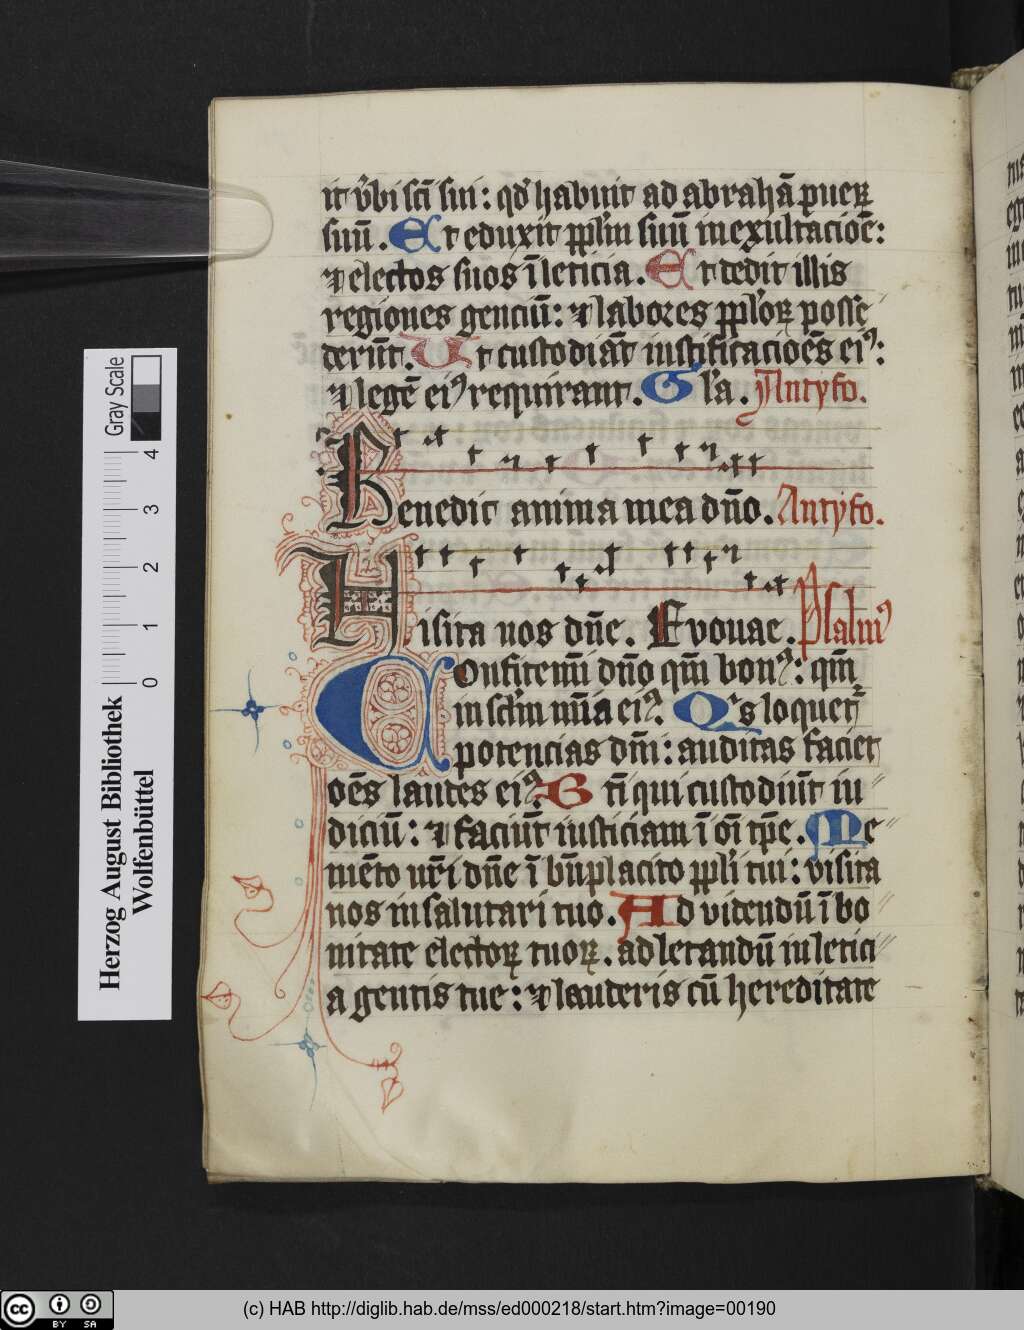 it v̓bi sc̄i sui: qd̓ habuit ad abrahā pueꝝ
suū. Et eduxit pp̄lm suū in exultacioē:
⁊ electos suos ī leticia. Et dedit illis
regiones genciū: ⁊ labores pp̄loꝝ posse
derūt. Ut custodiāt iustificacioēs eiꝰ:
⁊ legē eiꝰ requirant. Gl̓a. Antyfo.
Benedic anima mea dn̄o. Antyfo.
Uisita nos dn̄e. Evouae. Psalmꝰ
Confitemi̅ dn̄o qm̄ bonꝰ: qm̄
in sc̄lm mi̅a eiꝰ. Qis loquet̄
potencias dn̄i: auditas faciet
oēs laudes eiꝰ. Bt̄i qui custodiūt iu
diciū: ⁊ faciūt iusticiam ī oi̅ tp̄e. Me
mēto nr̄i dn̄e ī bn̄placito pp̄li tui: visita
nos in salutari tuo. Ad videndū ī bo
nitate electoꝝ tuoꝝ. ad letandū in letici
a gentis tue: ⁊ lauderis cū hereditate
Gray Scale
0 1 2 3 4
Herzog August Bibliothek
Wolfenbüttel
cc BY SA
(c) HAB http://diglib.hab.de/mss/ed000218/start.htm?image=00190